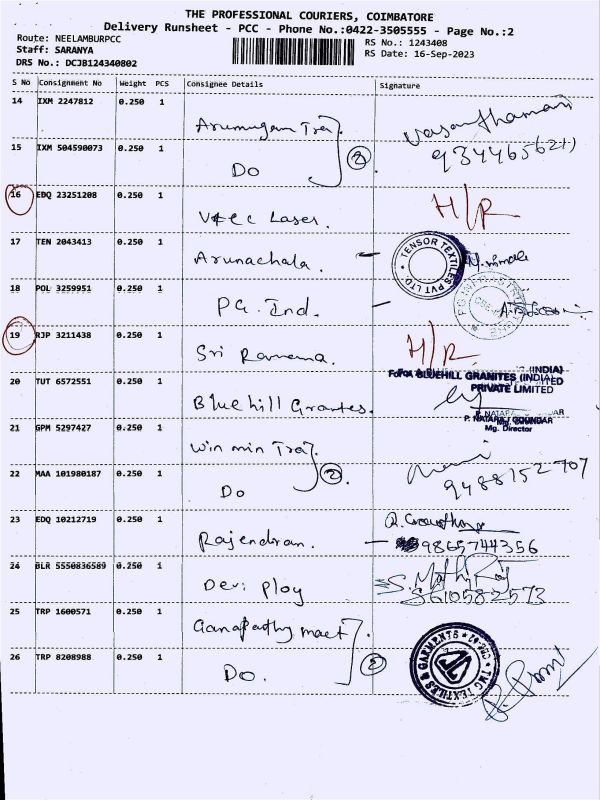 THE PROFESSIONAL COURIERS, COIMBATORE
Delivery Runsheet - PCC - Phone No.:0422-3505555 - Page No.:2
Route: NEELAMBURPCC
RS No.: 1243408
Staff: SARANYA
RS Date: 16-Sep-2023
DRS No.: DCJB124340802
S No Consignment No Weight PCS Consignee Details Signature
14 IXM 2247812 0.250 1
Arumugam Tra
Vasanthamani
15 IXM 504590073 0.250 1
Do 2
16 EDQ 23251208 0.250 1
Laser. H/R
17 TEN 2043413 0.250 1
Arunachala.
TENSOR TEXTILES PVT LTD.
18 POL 3259951 0.250 1
PG. Ind.
19 RJP 3211438 0.250 1
Sri Ramema. H/R
20 TUT 6572551 0.250 1
For BLUEHILL GRANITES (INDIA)
PRIVATE LIMITED
Bluehill Grantes.
P. NATARAJ GOUNDAR
Mg. Director
21 GPM 5297427 0.250 1
Win min Tra
22 MAA 101980187 0.250 1
Do 2.
9488152707
23 EDQ 10212719 0.250 1
Rajendran.
9865744356
24 BLR 5550836589 0.250 1
Devi ploy
S.
8610582573
25 TRP 1600571 0.250 1
Ganapathy
26 TRP 8208988 0.250 1
Do. 2
TMG TEXTILES & GARMENTS